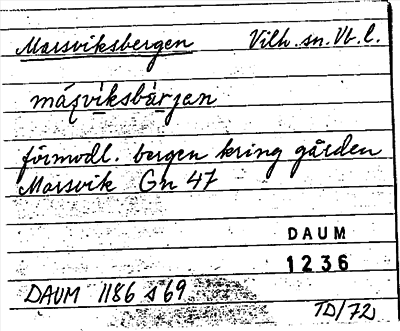 Marsviksbergen Vilh. sn. Vb. l.
máṣvìksbàrjan
förmodl. bergen kring gården
Marsvik Gn 47
DAUM
1236
DAUM 1186 s 69
TD/72